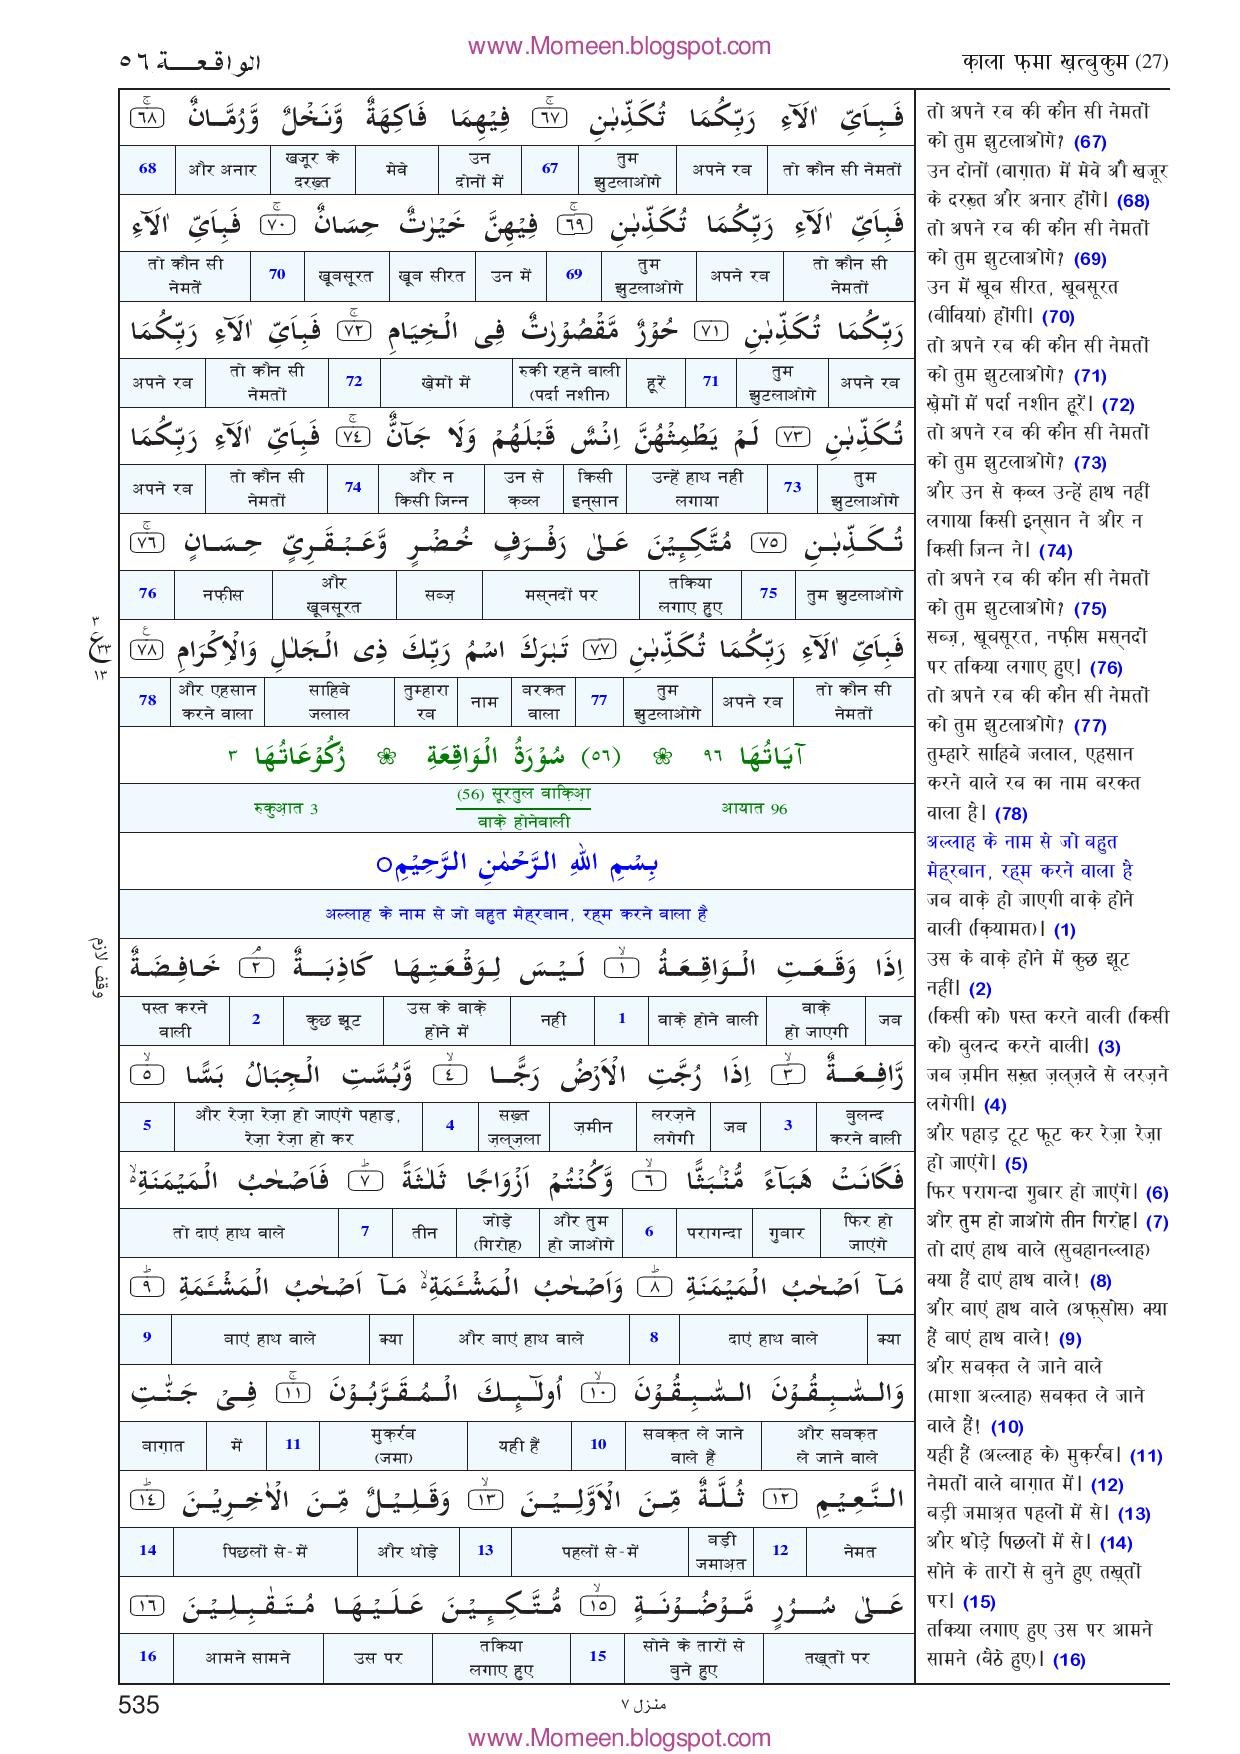 www.Momeen.blogspot.com
الواقعة ٥٦
क़ाला फ़मा ख़त्बुकुम (27)
فَبِاَىِّ اٰلَآءِ رَبِّكُمَا تُكَذِّبٰنِ ﴿٦٧﴾ فِيْهِمَا فَاكِهَةٌ وَّنَخْلٌ وَّرُمَّانٌ ﴿٦٨﴾
तो कौन सी नेमतों | अपने रब | तुम झुटलाओगे | 67 | उन दोनों में | मेवे | खजूर के दरख़्त | और अनार | 68
فَبِاَىِّ اٰلَآءِ رَبِّكُمَا تُكَذِّبٰنِ ﴿٦٩﴾ فِيْهِنَّ خَيْرٰتٌ حِسَانٌ ﴿٧٠﴾ فَبِاَىِّ اٰلَآءِ
तो कौन सी नेमतों | अपने रब | तुम झुटलाओगे | 69 | उन में | खूब सीरत | खूबसूरत | 70 | तो कौन सी नेमतें
رَبِّكُمَا تُكَذِّبٰنِ ﴿٧١﴾ حُوْرٌ مَّقْصُوْرٰتٌ فِى الْخِيَامِ ﴿٧٢﴾ فَبِاَىِّ اٰلَآءِ رَبِّكُمَا
अपने रब | तुम झुटलाओगे | 71 | हूरें | रुकी रहने वाली (पर्दा नशीन) | ख़ेमों में | 72 | तो कौन सी नेमतों | अपने रब
تُكَذِّبٰنِ ﴿٧٣﴾ لَمْ يَطْمِثْهُنَّ اِنْسٌ قَبْلَهُمْ وَلَا جَآنٌّ ﴿٧٤﴾ فَبِاَىِّ اٰلَآءِ رَبِّكُمَا
तुम झुटलाओगे | 73 | उन्हें हाथ नहीं लगाया | किसी इन्सान | उन से क़ब्ल | और न किसी जिन्न | 74 | तो कौन सी नेमतों | अपने रब
تُكَذِّبٰنِ ﴿٧٥﴾ مُتَّكِـِٕيْنَ عَلٰى رَفْرَفٍ خُضْرٍ وَّعَبْقَرِىٍّ حِسَانٍ ﴿٧٦﴾
तुम झुटलाओगे | 75 | तकिया लगाए हुए | मस्नदों पर | सब्ज़ | और खूबसूरत | नफ़ीस | 76
فَبِاَىِّ اٰلَآءِ رَبِّكُمَا تُكَذِّبٰنِ ﴿٧٧﴾ تَبٰرَكَ اسْمُ رَبِّكَ ذِى الْجَلٰلِ وَالْاِكْرَامِ ﴿٧٨﴾
तो कौन सी नेमतों | अपने रब | तुम झुटलाओगे | 77 | बरकत वाला | नाम | तुम्हारा रब | साहिबे जलाल | और एहसान करने वाला | 78
٣ ع ٣٣ ١٣
آيَاتُهَا ٩٦ ❀ (٥٦) سُوْرَةُ الْوَاقِعَةِ ❀ رُكُوْعَاتُهَا ٣
आयात 96 | (56) सूरतुल वाक़िआ़ | रुकुआ़त 3
वाक़े होनेवाली
بِسْمِ اللّٰهِ الرَّحْمٰنِ الرَّحِيْمِ
अल्लाह के नाम से जो बहुत मेह्रबान, रह्म करने वाला है
اِذَا وَقَعَتِ الْوَاقِعَةُ ﴿١﴾ لَيْسَ لِوَقْعَتِهَا كَاذِبَةٌ ﴿٢﴾ خَافِضَةٌ
وقف لازم
जब | वाक़े हो जाएगी | वाक़े होने वाली | 1 | नहीं | उस के वाक़े होने में | कुछ झूट | 2 | पस्त करने वाली
رَّافِعَةٌ ﴿٣﴾ اِذَا رُجَّتِ الْاَرْضُ رَجًّا ﴿٤﴾ وَّبُسَّتِ الْجِبَالُ بَسًّا ﴿٥﴾
बुलन्द करने वाली | 3 | जब | लरज़ने लगेगी | ज़मीन | सख़्त ज़ल्ज़ला | 4 | और रेज़ा रेज़ा हो जाएंगे पहाड़, रेज़ा रेज़ा हो कर | 5
فَكَانَتْ هَبَآءً مُّنْۢبَثًّا ﴿٦﴾ وَّكُنْتُمْ اَزْوَاجًا ثَلٰثَةً ﴿٧﴾ فَاَصْحٰبُ الْمَيْمَنَةِ
फिर हो जाएंगे | गुबार | परागन्दा | 6 | और तुम हो जाओगे | जोड़े (गिरोह) | तीन | 7 | तो दाएं हाथ वाले
مَآ اَصْحٰبُ الْمَيْمَنَةِ ﴿٨﴾ وَاَصْحٰبُ الْمَشْـَٔمَةِ مَآ اَصْحٰبُ الْمَشْـَٔمَةِ ﴿٩﴾
क्या | दाएं हाथ वाले | 8 | और बाएं हाथ वाले | क्या | बाएं हाथ वाले | 9
وَالسّٰبِقُوْنَ السّٰبِقُوْنَ ﴿١٠﴾ اُولٰٓئِكَ الْمُقَرَّبُوْنَ ﴿١١﴾ فِىْ جَنّٰتِ
और सबक़त ले जाने वाले | सबक़त ले जाने वाले हैं | 10 | यही हैं | मुक़र्रब (जमा) | 11 | में | बाग़ात
النَّعِيْمِ ﴿١٢﴾ ثُلَّةٌ مِّنَ الْاَوَّلِيْنَ ﴿١٣﴾ وَقَلِيْلٌ مِّنَ الْاٰخِرِيْنَ ﴿١٤﴾
नेमत | 12 | बड़ी जमाअ़त | पहलों से-में | 13 | और थोड़े | पिछलों से-में | 14
عَلٰى سُرُرٍ مَّوْضُوْنَةٍ ﴿١٥﴾ مُّتَّكِـِٕيْنَ عَلَيْهَا مُتَقٰبِلِيْنَ ﴿١٦﴾
तख़्तों पर | सोने के तारों से बुने हुए | 15 | तकिया लगाए हुए | उस पर | आमने सामने | 16
तो अपने रब की कौन सी नेमतों
को तुम झुटलाओगे? (67)
उन दोनों (बाग़ात) में मेवे औ खजूर
के दरख़्त और अनार होंगे। (68)
तो अपने रब की कौन सी नेमतों
को तुम झुटलाओगे? (69)
उन में खूब सीरत, खूबसूरत
(बीवियां) होंगी। (70)
तो अपने रब की कौन सी नेमतों
को तुम झुटलाओगे? (71)
ख़ेमों में पर्दा नशीन हूरें। (72)
तो अपने रब की कौन सी नेमतों
को तुम झुटलाओगे? (73)
और उन से क़ब्ल उन्हें हाथ नहीं
लगाया किसी इन्सान ने और न
किसी जिन्न ने। (74)
तो अपने रब की कौन सी नेमतों
को तुम झुटलाओगे? (75)
सब्ज़, खूबसूरत, नफ़ीस मस्नदों
पर तकिया लगाए हुए। (76)
तो अपने रब की कौन सी नेमतों
को तुम झुटलाओगे? (77)
तुम्हारे साहिबे जलाल, एहसान
करने वाले रब का नाम बरकत
वाला है। (78)
अल्लाह के नाम से जो बहुत
मेह्रबान, रह्म करने वाला है
जब वाक़े हो जाएगी वाक़े होने
वाली (क़ियामत)। (1)
उस के वाक़े होने में कुछ झूट
नहीं। (2)
(किसी को) पस्त करने वाली (किसी
को) बुलन्द करने वाली। (3)
जब ज़मीन सख़्त ज़ल्ज़ले से लरज़ने
लगेगी। (4)
और पहाड़ टूट फूट कर रेज़ा रेज़ा
हो जाएंगे। (5)
फिर परागन्दा गुबार हो जाएंगे। (6)
और तुम हो जाओगे तीन गिरोह। (7)
तो दाएं हाथ वाले (सुबहानल्लाह)
क्या हैं दाएं हाथ वाले! (8)
और बाएं हाथ वाले (अफ़्सोस) क्या
हैं बाएं हाथ वाले! (9)
और सबक़त ले जाने वाले
(माशा अल्लाह) सबक़त ले जाने
वाले हैं! (10)
यही हैं (अल्लाह के) मुक़र्रब। (11)
नेमतों वाले बाग़ात में। (12)
बड़ी जमाअ़त पहलों में से। (13)
और थोड़े पिछलों में से। (14)
सोने के तारों से बुने हुए तख़्तों
पर। (15)
तकिया लगाए हुए उस पर आमने
सामने (बैठे हुए)। (16)
535
منزل ٧
www.Momeen.blogspot.com